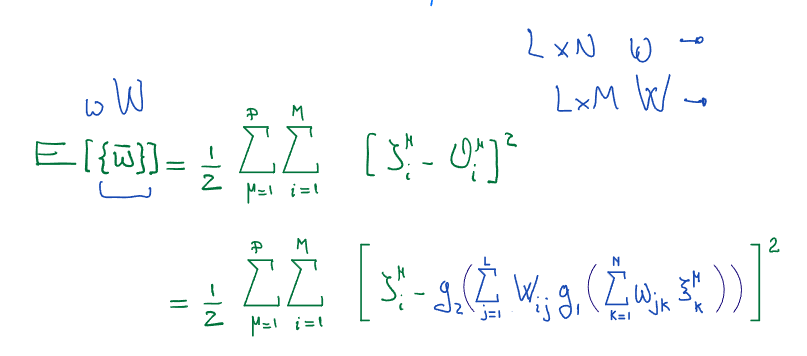 L×N ω →
L×M W →
ω W
E[{w̄}] = 1/2 Σ_{μ=1}^{P} Σ_{i=1}^{M} [ζ_i^μ - O_i^μ]^2
= 1/2 Σ_{μ=1}^{P} Σ_{i=1}^{M} [ζ_i^μ - g_2(Σ_{j=1}^{L} W_{ij} g_1(Σ_{k=1}^{N} ω_{jk} ξ_k^μ))]^2